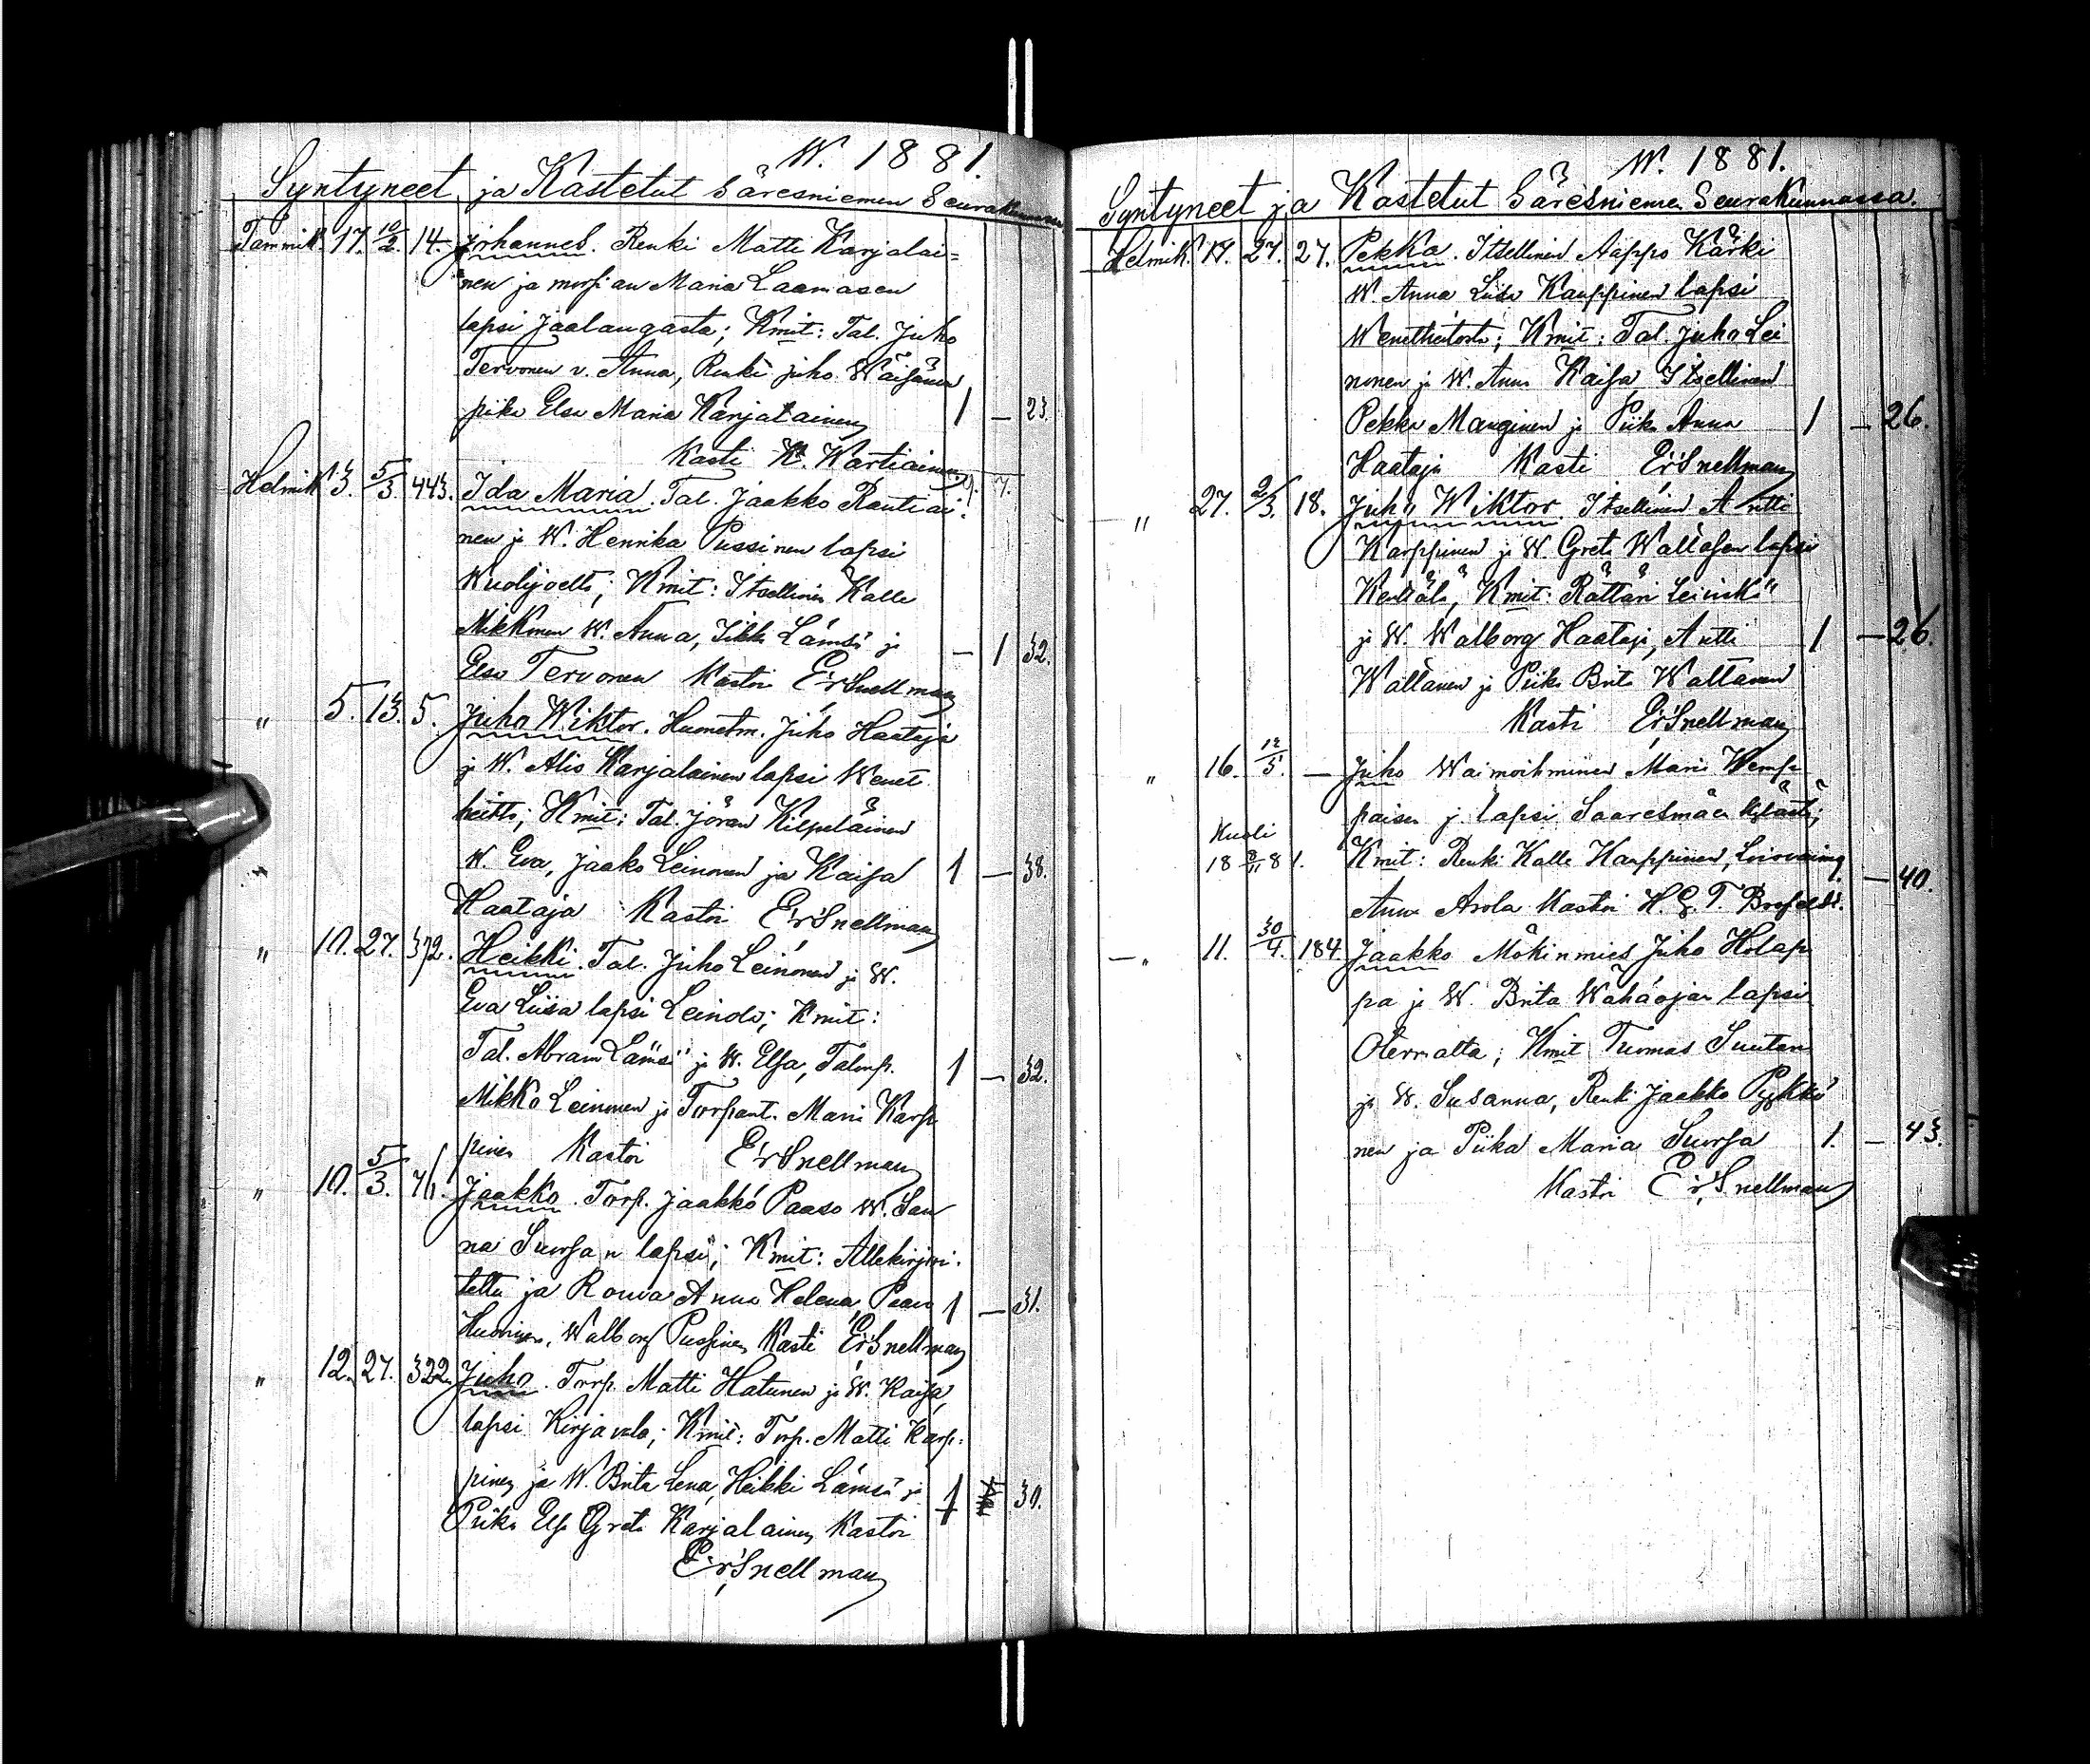 W. 1881.
Syntyneet ja Kastetut Säresniemen Seurakunnassa
Tammik. 17. 10/2. 14. Johannes. Renki Matti Karjalai=
nen ja morsian Maria Laamasen
lapsi Jaalangasta; Kmit: Tal. Juho
Tervonen v. Anna, Renki Juho Wäisänen
piika Elsa Maria Karjalainen 1 — 23.
Kasti K. Wartiainen
Helmik. 3. 5/3. 443. Ida Maria. Tal. Jaakko Rautiai-
nen ja W. Henrika Pussinen lapsi
Kuolijoelta; Kmit: Itsellinen Kalle
Mikkonen W. Anna, Heikki Lämsä ja — 1 32.
Elsa Tervonen Kastoi Er. Snellman
" 5. 13. 5. Juho Wiktor. Huonetm. Juho Haataja
ja W. Alis Karjalainen lapsi Wenet
heitto; Kmit: Tal. Jöran Kilpeläinen
W. Eva, Jaako Leinonen ja Kaisa 1 — 38.
Haataja Kastoi Er. Snellman
" 10. 27. 372. Heikki. Tal. Juho Leinonen ja W.
Eva Liisa lapsi Leinola; Kmit:
Tal. Abram Lämsä ja W. Elsa, Talonp. 1 — 32.
Mikko Leinonen ja Torpant. Maria Karp
pinen Kastoi Er. Snellman
" 10. 5/3. 76. Jaakko. Torp. Jaakko Paaso W. San
na Suorsan lapsi; Kmit: Allekirjoi-
tettu ja Rouva Anna Helena, Paavo 1 — 31.
Huovinen, Walborg Pussinen Kasti Er. Snellman
" 12. 27. 322. Juho. Torp. Matti Hatunen ja W. Kaisa
lapsi Kirjavala; Kmit: Torp. Matti Karp-
pinen ja W. Brita Lena, Heikki Lämsä ja 1 30.
Piika Elsa Greta Karjalainen Kastoi
Er. Snellman
W. 1881.
Syntyneet ja Kastetut Säresniemen Seurakunnassa.
Helmik. 17. 27. 27. Pekka. Itsellinen Aappo Kärki
W. Anna Liisa Kauppinen lapsi
Wenetheitosta; Kmit: Tal. Juho Lei
nonen ja W. Anna Kaisa Itsellinen
Pekka Manginen ja Piika Anna 1 — 26.
Haataja Kasti Er. Snellman
" 27. 2/3. 18. Juho Wiktor. Itsellinen Antti
Karppinen ja W. Greta Wäläsen lapsi
Kmit: Räätäri
ja W. Walborg Haataja, Antti 1 — 26.
WäTänen ja Piika Brita Waltanen
Kasti Er. Snellman
" 16. 12/5. — Juho Waimoihminen Maria Kemp
paisen j. lapsi Saaresmäen kylästä;
Kuoli
18 8/11 81. Kmit: Renki Kalle Kauppinen, Loisvaimo — 40.
Anna Arola Kastoi H. G. T. Brofeldt.
" 11. 30/4. 184. Jaakko Mökinmies Juho Holap
pa ja W. Brita Wähäojan lapsi
Otermalta; Kmit Tuomas Suutari
ja W. Susanna, Renki Jaakko Pyykkö
nen ja Piika Maria Suorsa 1. — 43.
Kastoi Er. Snellman